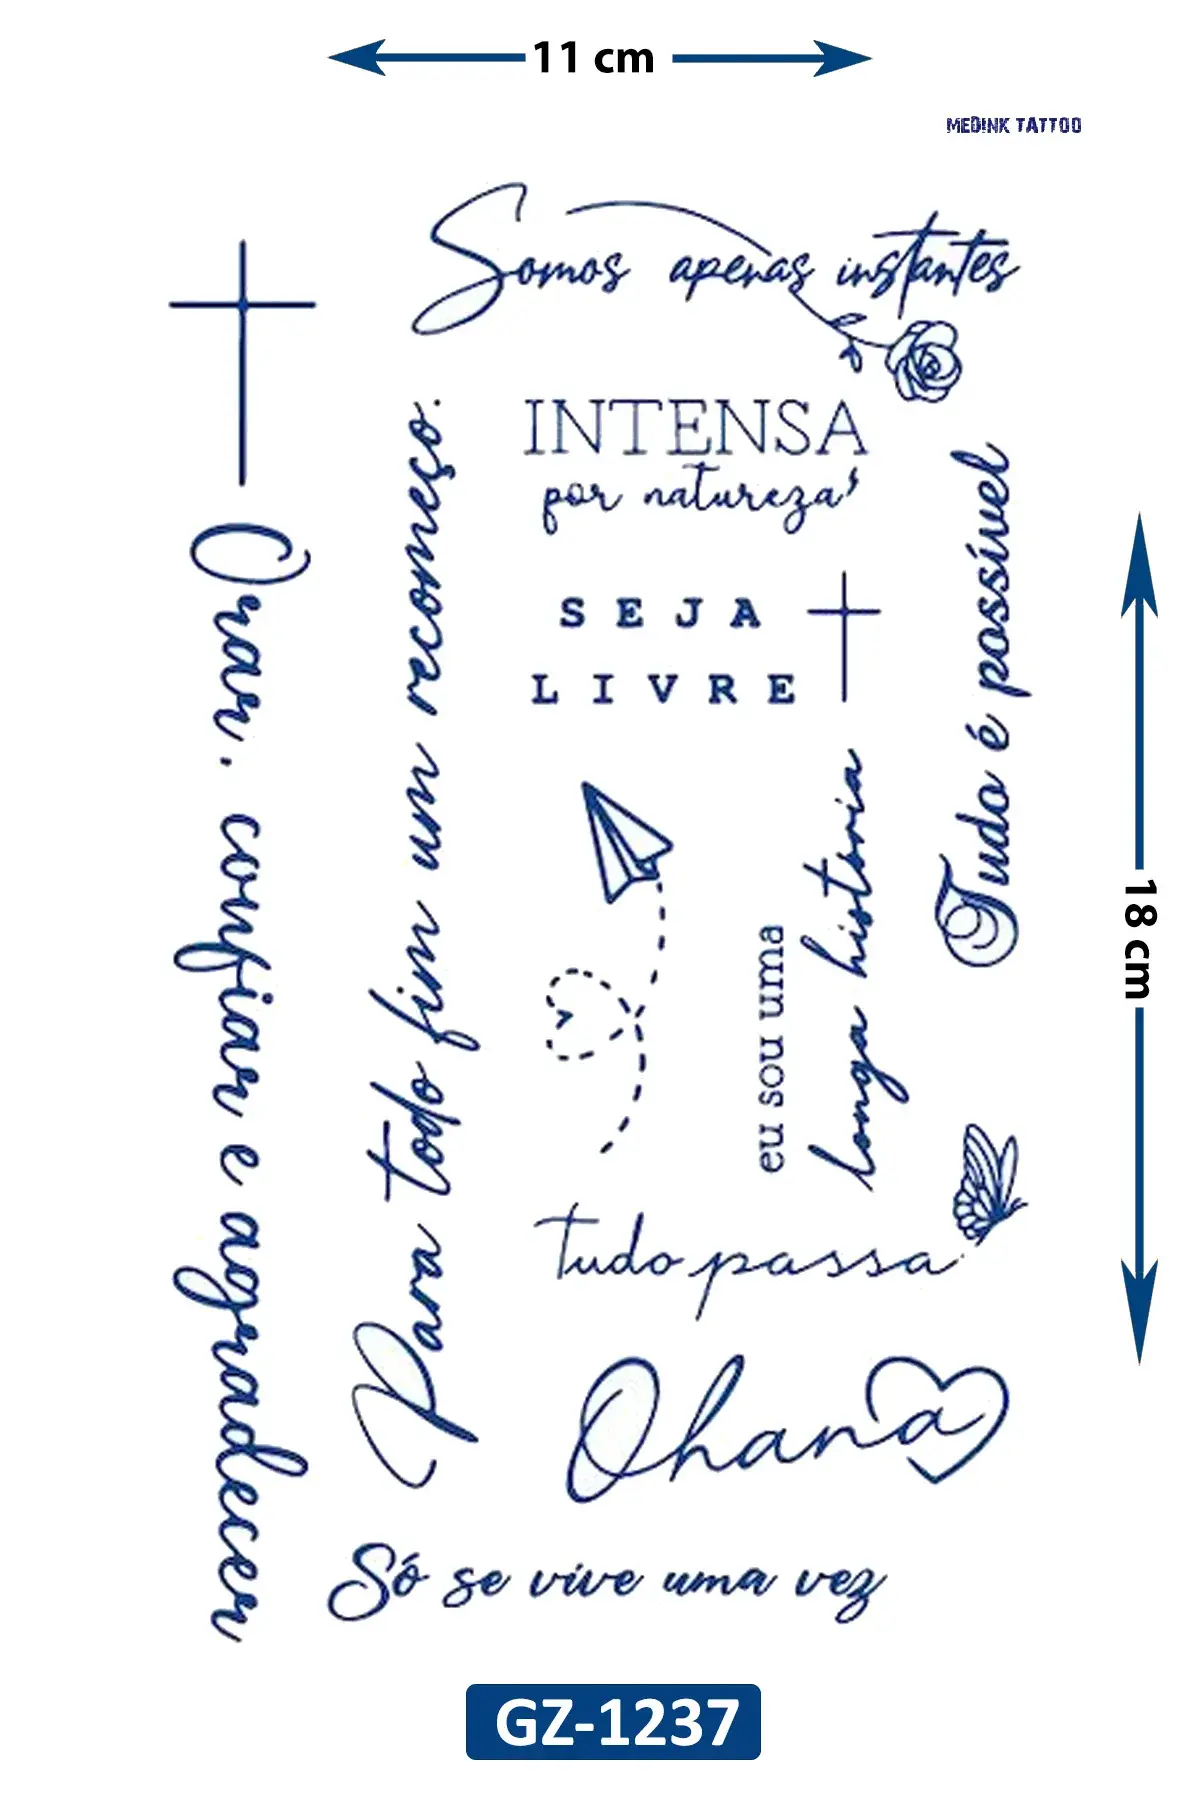 11 cm
MEDINK TATTOO
Somos apenas instantes
INTENSA
por natureza
SEJA
LIVRE
Orar. confiar e agradecer
Para todo fim um recomeço.
Tudo é possível
eu sou uma
longa historia
tudo passa
Ohana
Só se vive uma vez
18 cm
GZ-1237